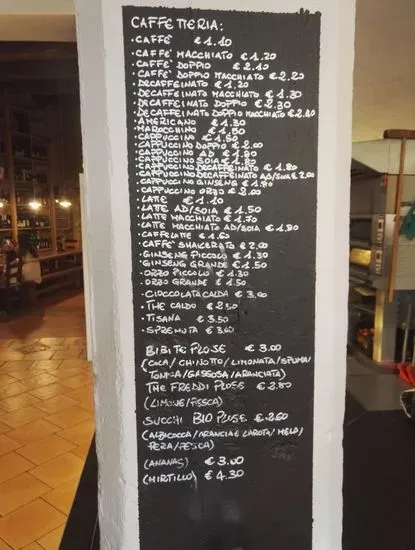 CAFFETTERIA:
· CAFFÈ € 1.10
· CAFFÈ MACCHIATO € 1.20
· CAFFÈ DOPPIO € 2.10
· CAFFÈ DOPPIO MACCHIATO € 2.20
· DECAFFEINATO € 1.20
· DECAFFEINATO MACCHIATO € 1.30
· DECAFFEINATO DOPPIO € 2.30
· DECAFFEINATO DOPPIO MACCHIATO € 2.40
· AMERICANO € 1.30
· MAROCCHINO € 1.50
· CAPPUCCINO € 1.50
· CAPPUCCINO DOPPIO € 2.00
· CAPPUCCINO AD € 1.80
· CAPPUCCINO SOIA € 1.80
· CAPPUCCINO DECAFFEINATO € 1.80
· CAPPUCCINO DECAFFEINATO AD/SOIA € 2.00
· CAPPUCCINO GINSENG € 1.80
· CAPPUCCINO ORZO € 2.00
· LATTE € 1.10
· LATTE AD/SOIA € 1.50
· LATTE MACCHIATO € 1.70
· LATTE MACCHIATO AD/SOIA € 1.80
· CAFFELATTE € 1.60
· CAFFÈ SHAKERATO € 2.00
· GINSENG PICCOLO € 1.30
· GINSENG GRANDE € 1.50
· ORZO PICCOLO € 1.30
· ORZO GRANDE € 1.50
· CIOCCOLATA CALDA € 3.00
· THE CALDO € 2.50
· TISANA € 3.50
· SPREMUTA € 3.00
BIBITE PLOSE € 3.00
(COLA/CHINOTTO/LIMONATA/SPUMA/
TONICA/GASSOSA/ARANCIATA)
THE FREDDI PLOSE € 2.80
(LIMONE/PESCA)
SUCCHI BIO PLOSE € 2.60
(ALBICOCCA/ARANCIA E CAROTA/MELA/
PERA/PESCA)
(ANANAS) € 3.00
(MIRTILLO) € 4.30